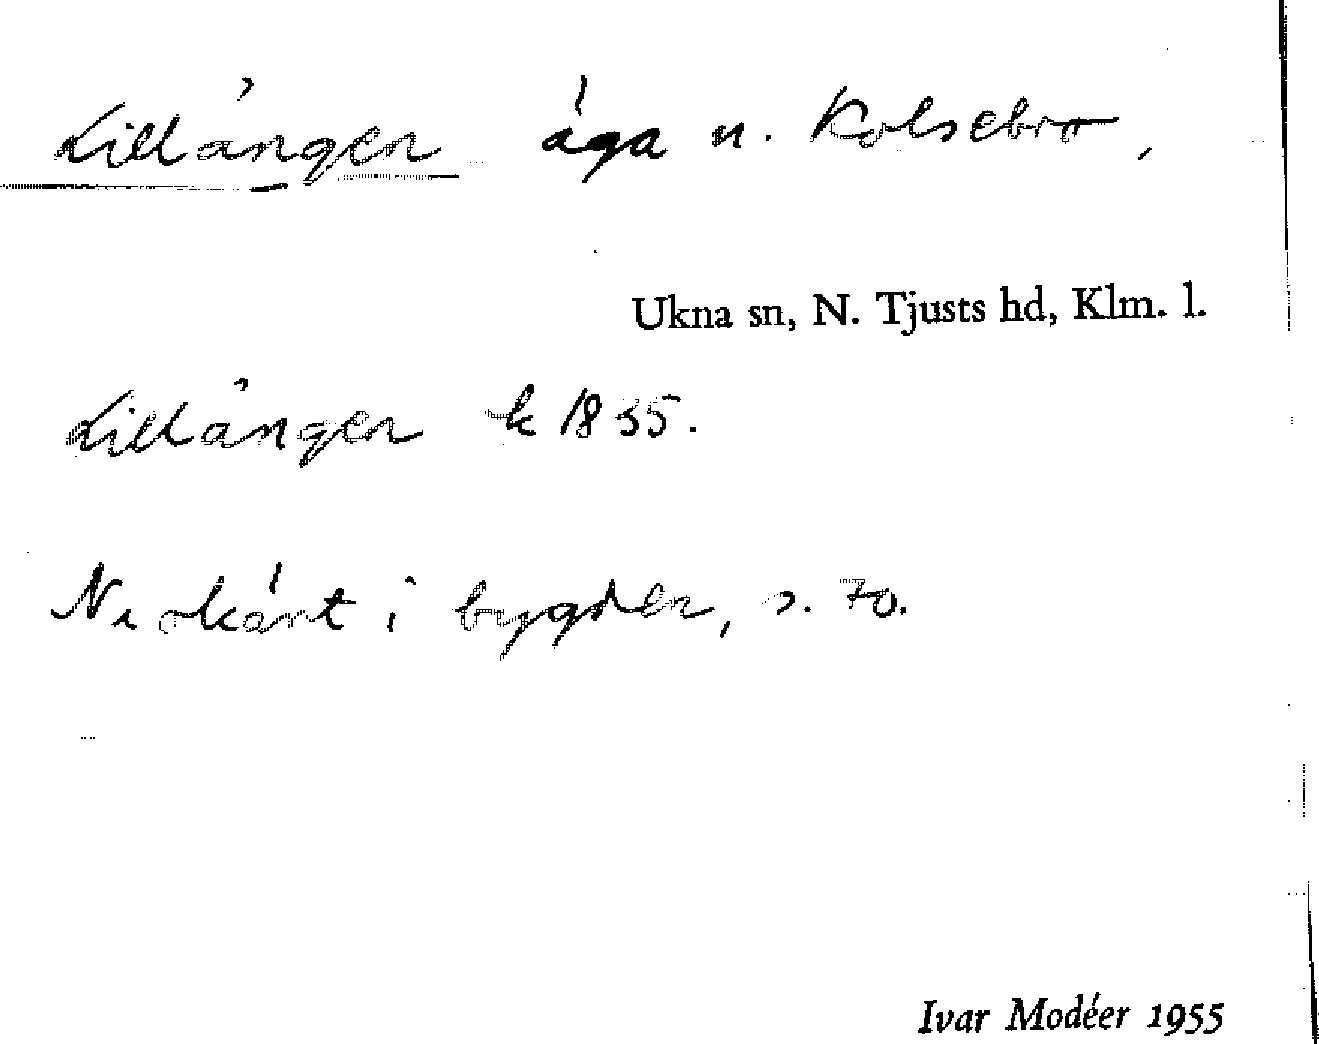 Lillängen äga u. Kolsebro,
Ukna sn, N. Tjusts hd, Klm. l.
Lillängen k 1835.
Nu okänt i bygden, s. 70.
Ivar Modéer 1955